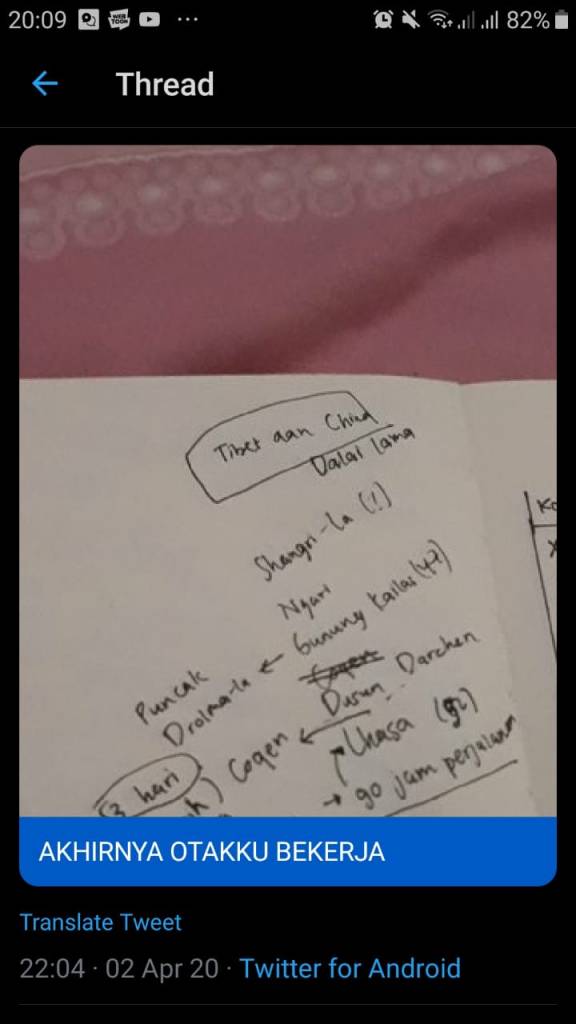 20:09
WEB TOON
82%
Thread
Tibet dan China
Dalai Lama
Shangri-La (1)
Ngari
Gunung Kailas (47)
Puncak
Drolma-la ←
Dusun Darchen
Coqen ←
Lhasa
(3 hari)
→ 90 jam perjalanan
AKHIRNYA OTAKKU BEKERJA
Translate Tweet
22:04 · 02 Apr 20 · Twitter for Android